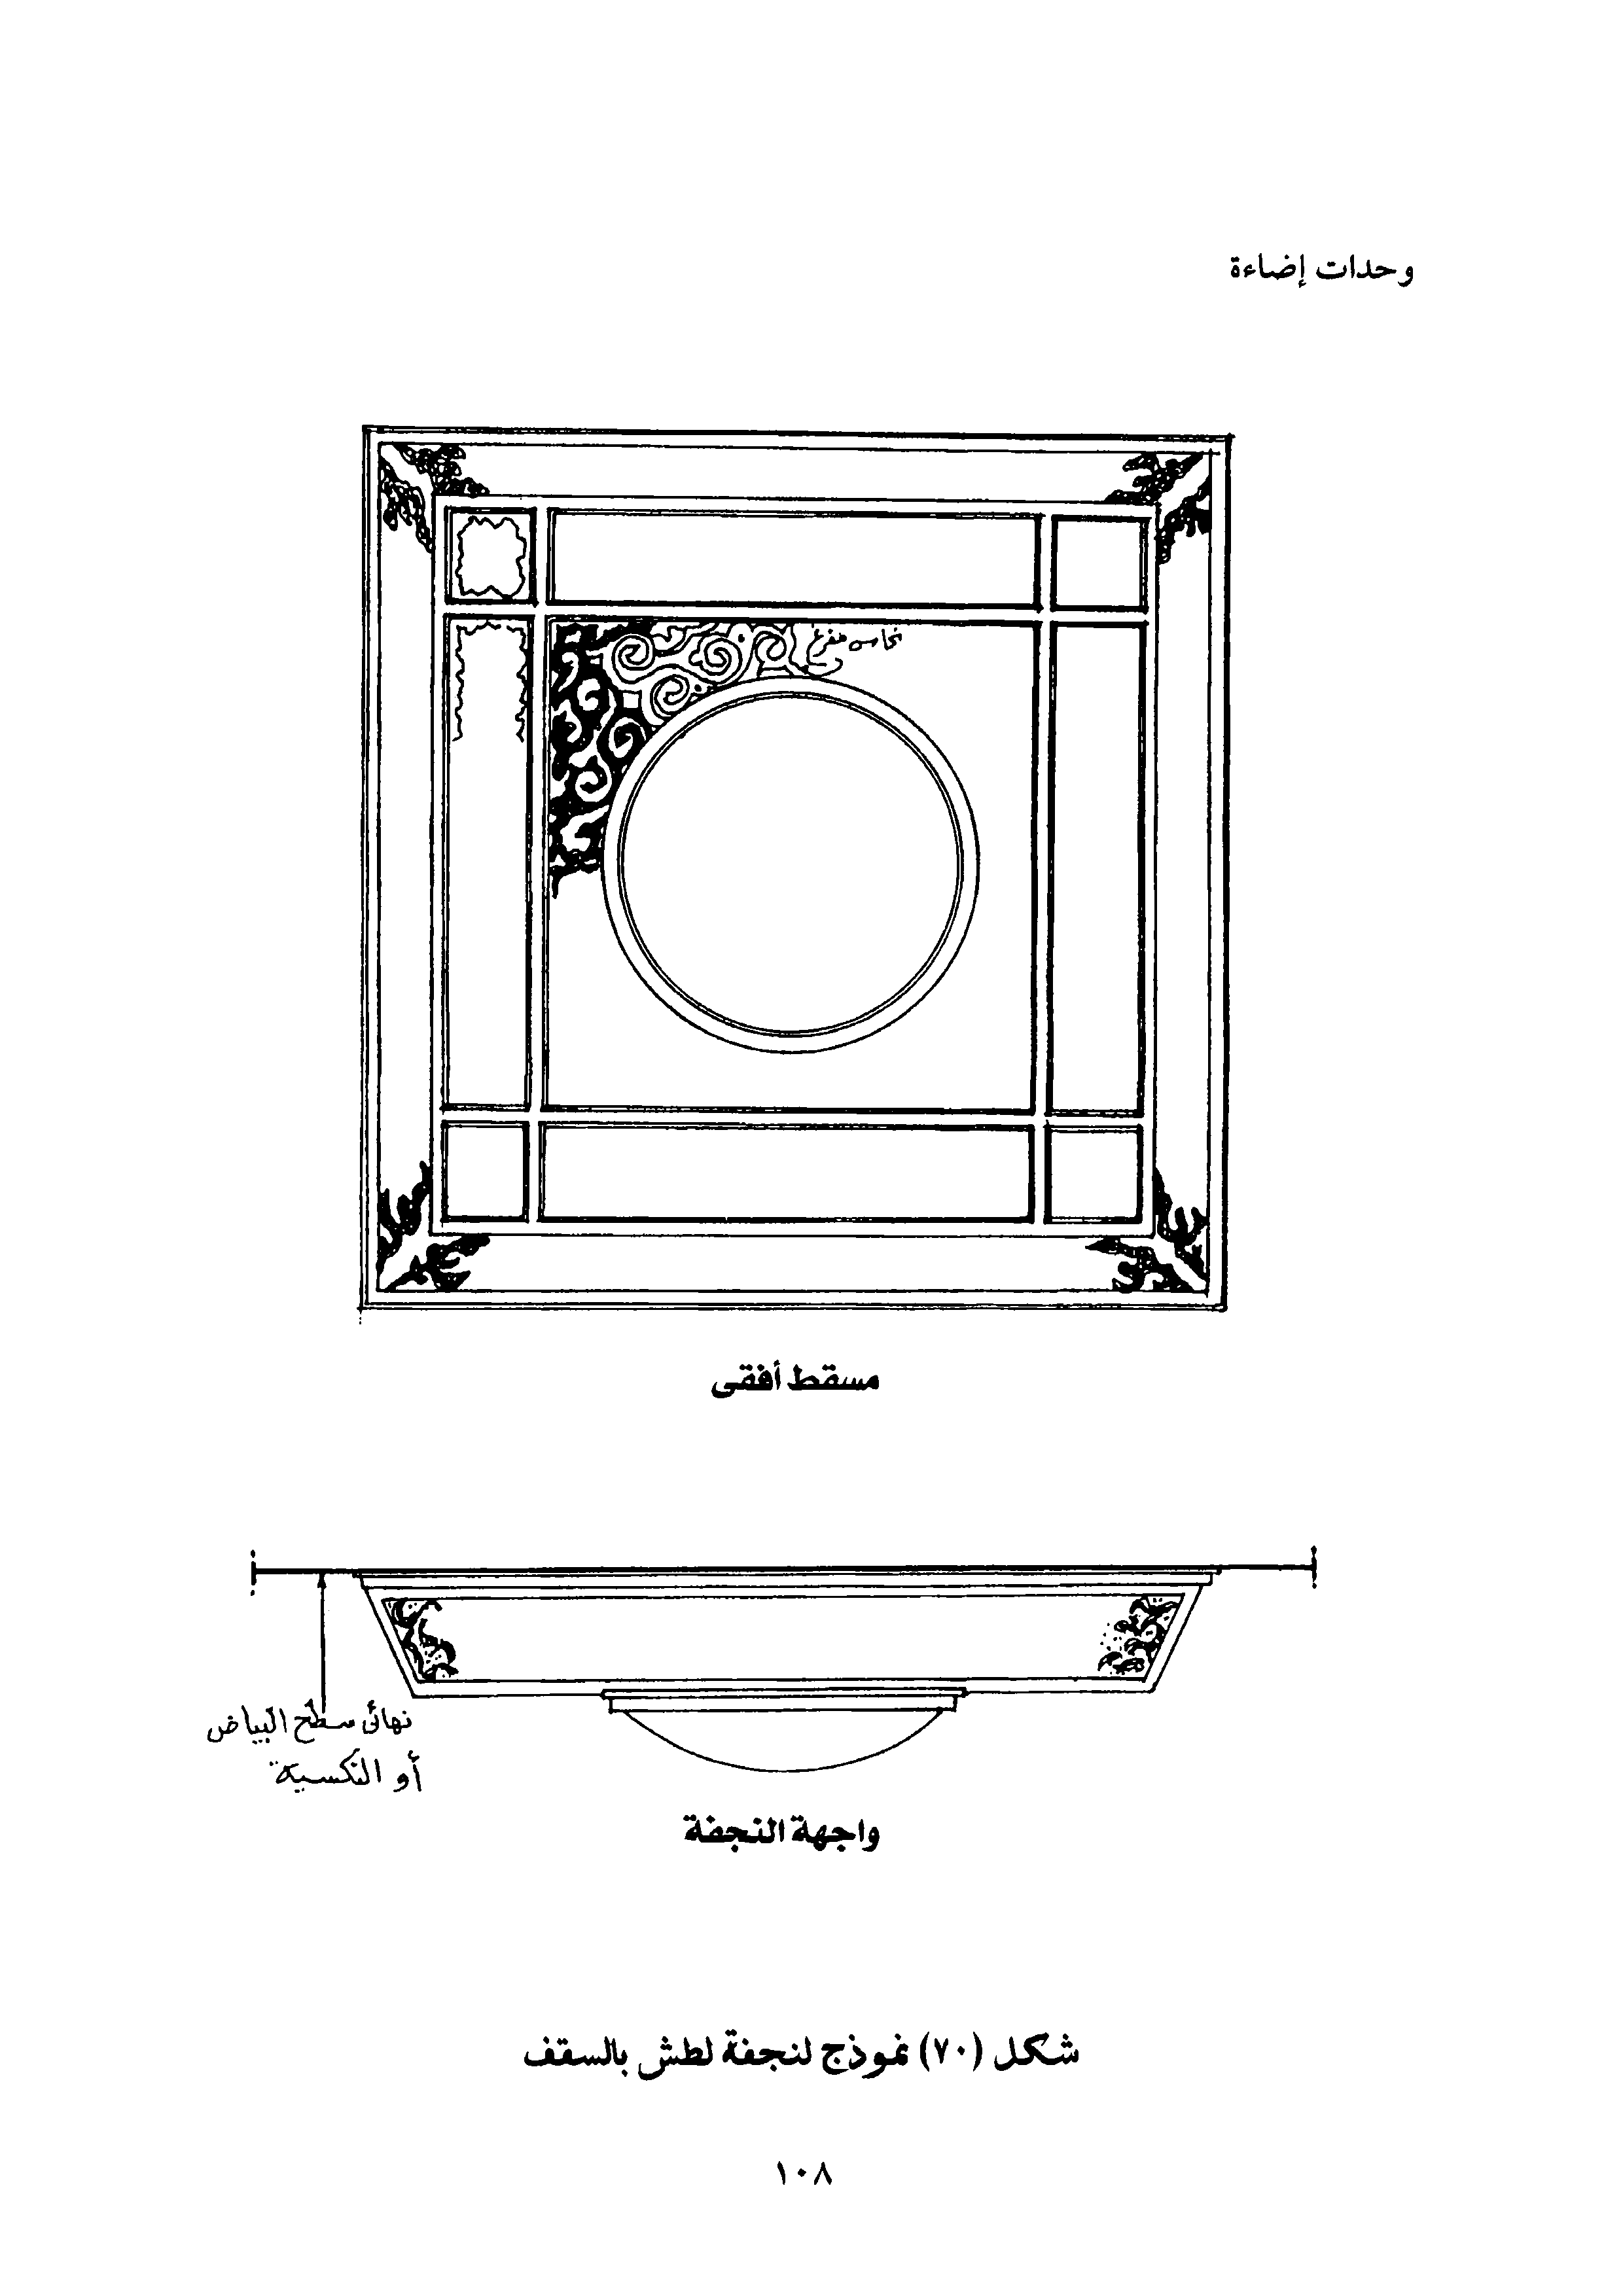 وحدات إضاءة
نحاس مفرغ
مسقط أفقى
نهائى سطح البياض
أو التكسية
واجهة النجفة
شكل (٧٠) نموذج لنجفة لطش بالسقف
١٠٨